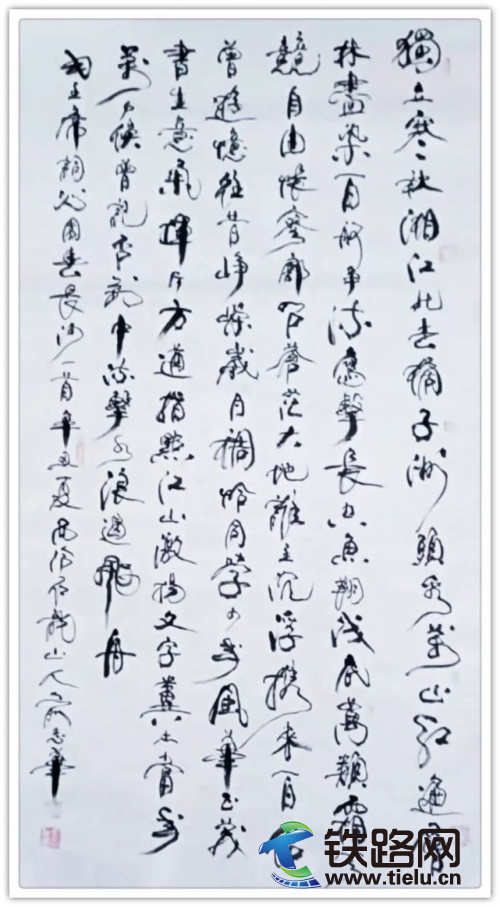 獨立寒秋湘江北去橘子洲頭看萬山紅遍層
林盡染百舸爭流鷹擊長空魚翔淺底萬類霜天
競自由悵寥廓問蒼茫大地誰主沉浮攜來百侶
曾遊憶往昔崢嶸歲月稠恰同學少年風華正茂
書生意氣揮斥方遒指點江山激揚文字糞土當年
萬戶侯曾記否到中流擊水浪遏飛舟
毛主席詞沁園春長沙一首辛丑夏 龍山人 志華
铁路网
www.tielu.cn